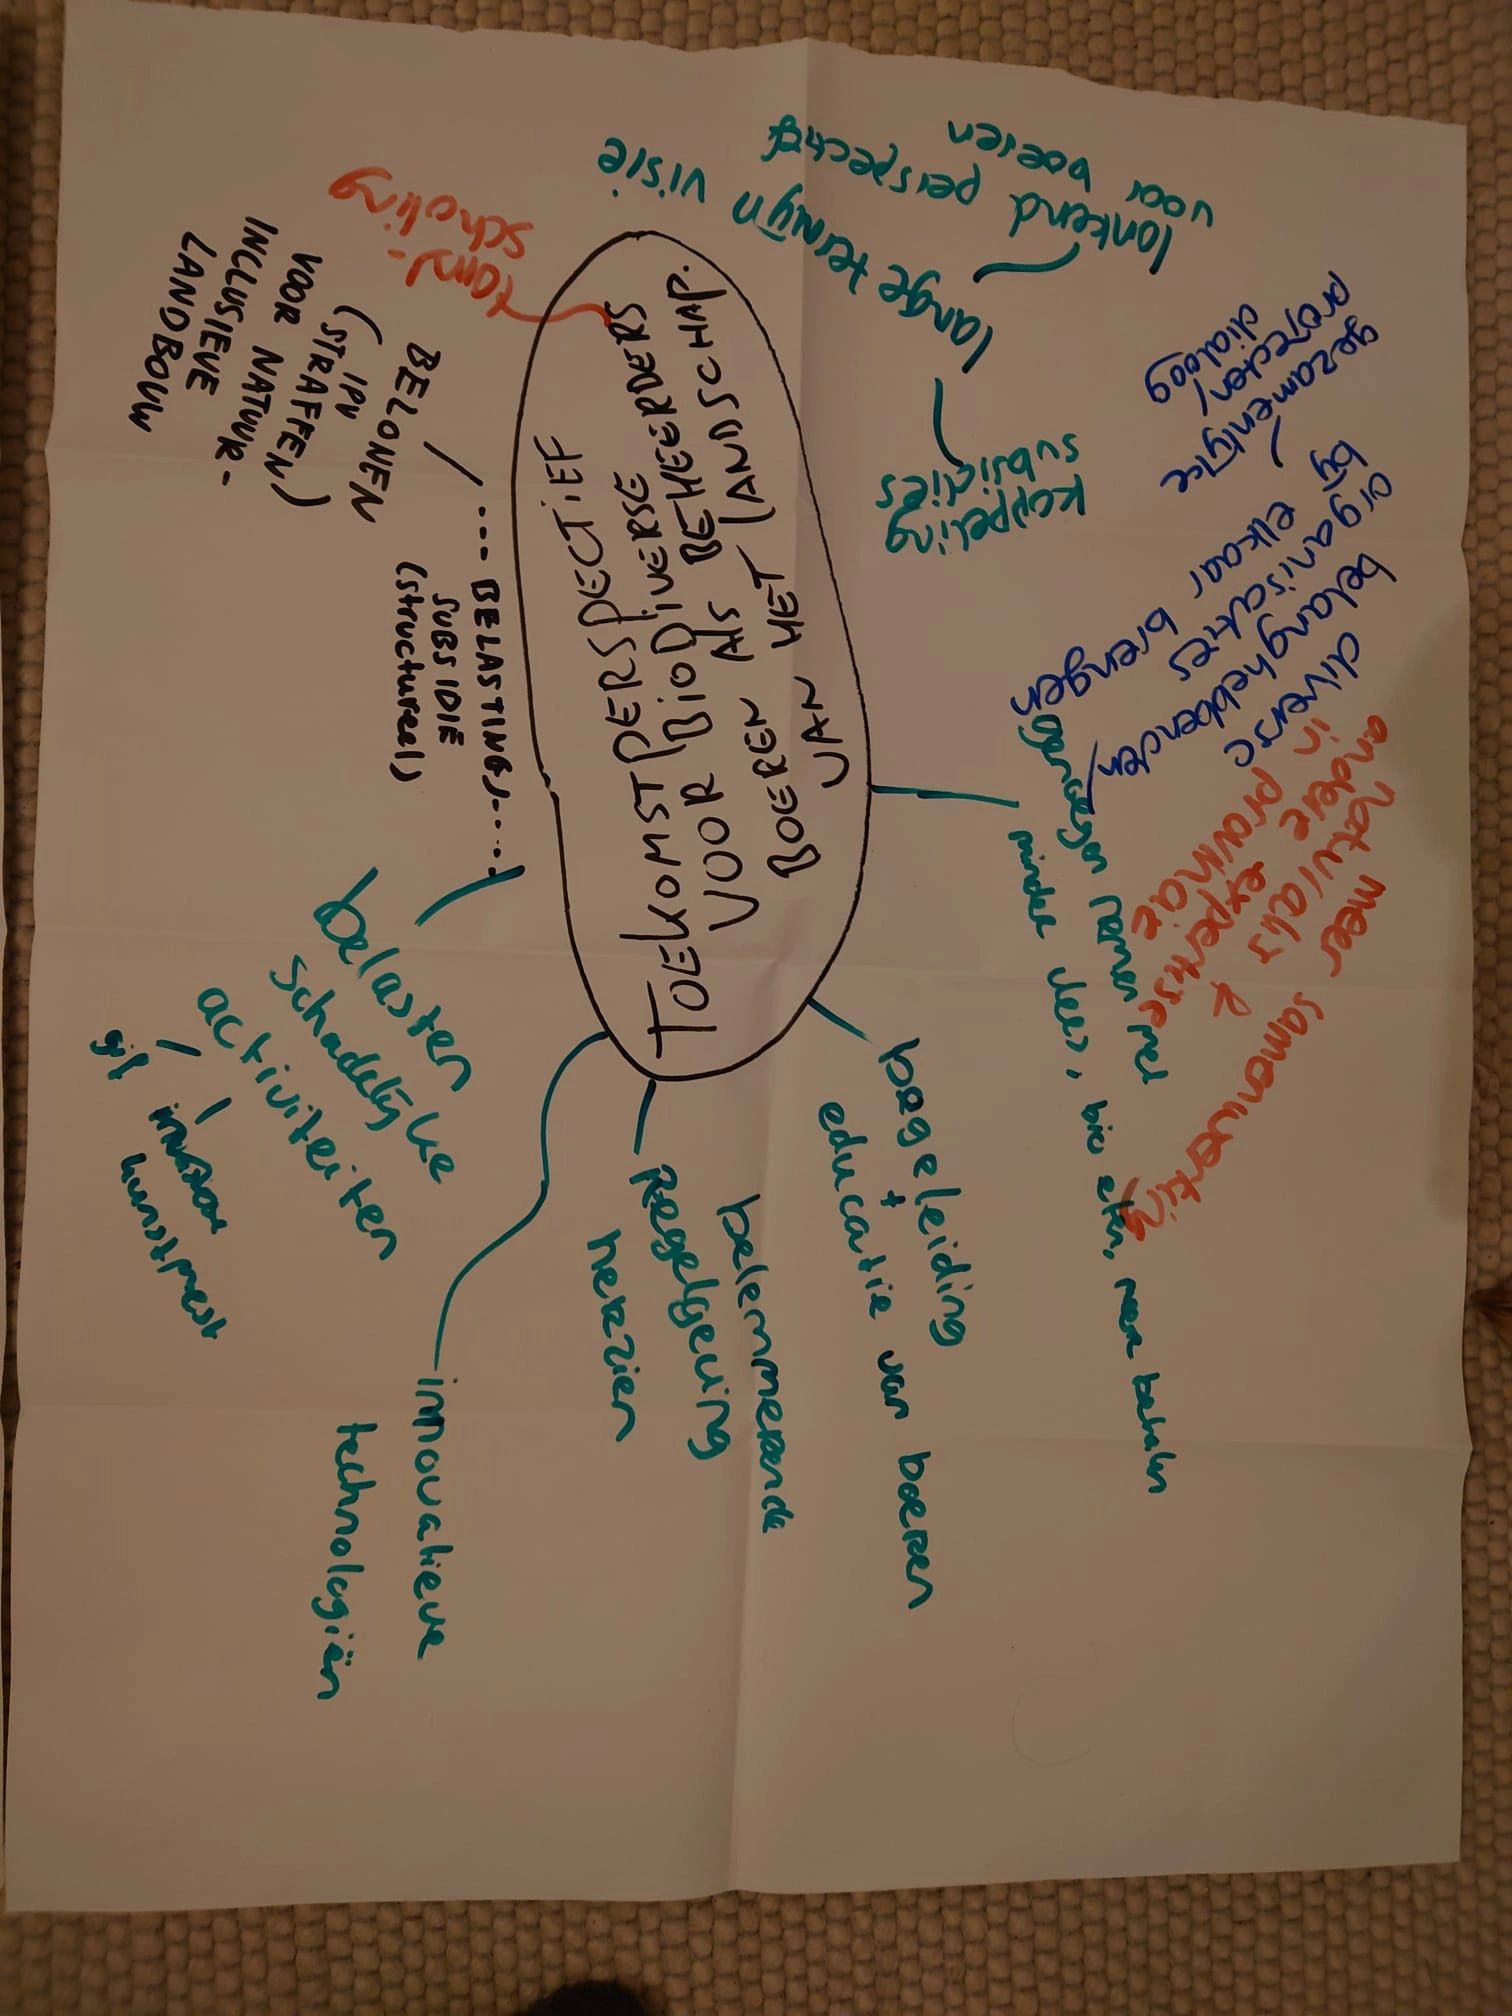 TOEKOMSTPERSPECTIEF
VOOR BIODIVERSE
BOEREN ALS BEHEERDERS
VAN HET LANDSCHAP.
scholing
lange termyn visie
lonkend perspectief
voor boeren
koppeling
subsidies
gezamenlyke
projecten/
dialoog
diverse
belanghebbenden/
organisaties
by elkaar brengen
meer samenwerking
Naturalis &
andere expertise
in provincie
minder vlees, bio eten, meer betalen
begeleiding
+
educatie van boeren
belemmerende
Regelgeving
herzien
innovatieve
technologiën
belasten
schadelyke
activiteiten
gif
kunstmest
... BELASTING,....
SUBSIDIE
(structureel)
BELONEN
(IPV
STRAFFEN)
VOOR NATUUR-
INCLUSIEVE
LANDBOUW